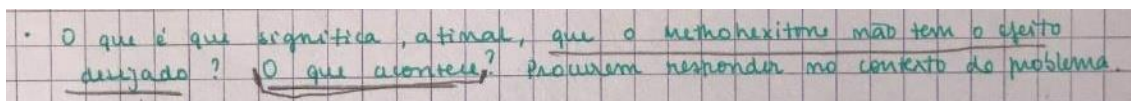 • O que é que significa, afinal, que o methohexitone não tem o efeito
desejado? O que acontece? Procurem responder no contexto do problema.